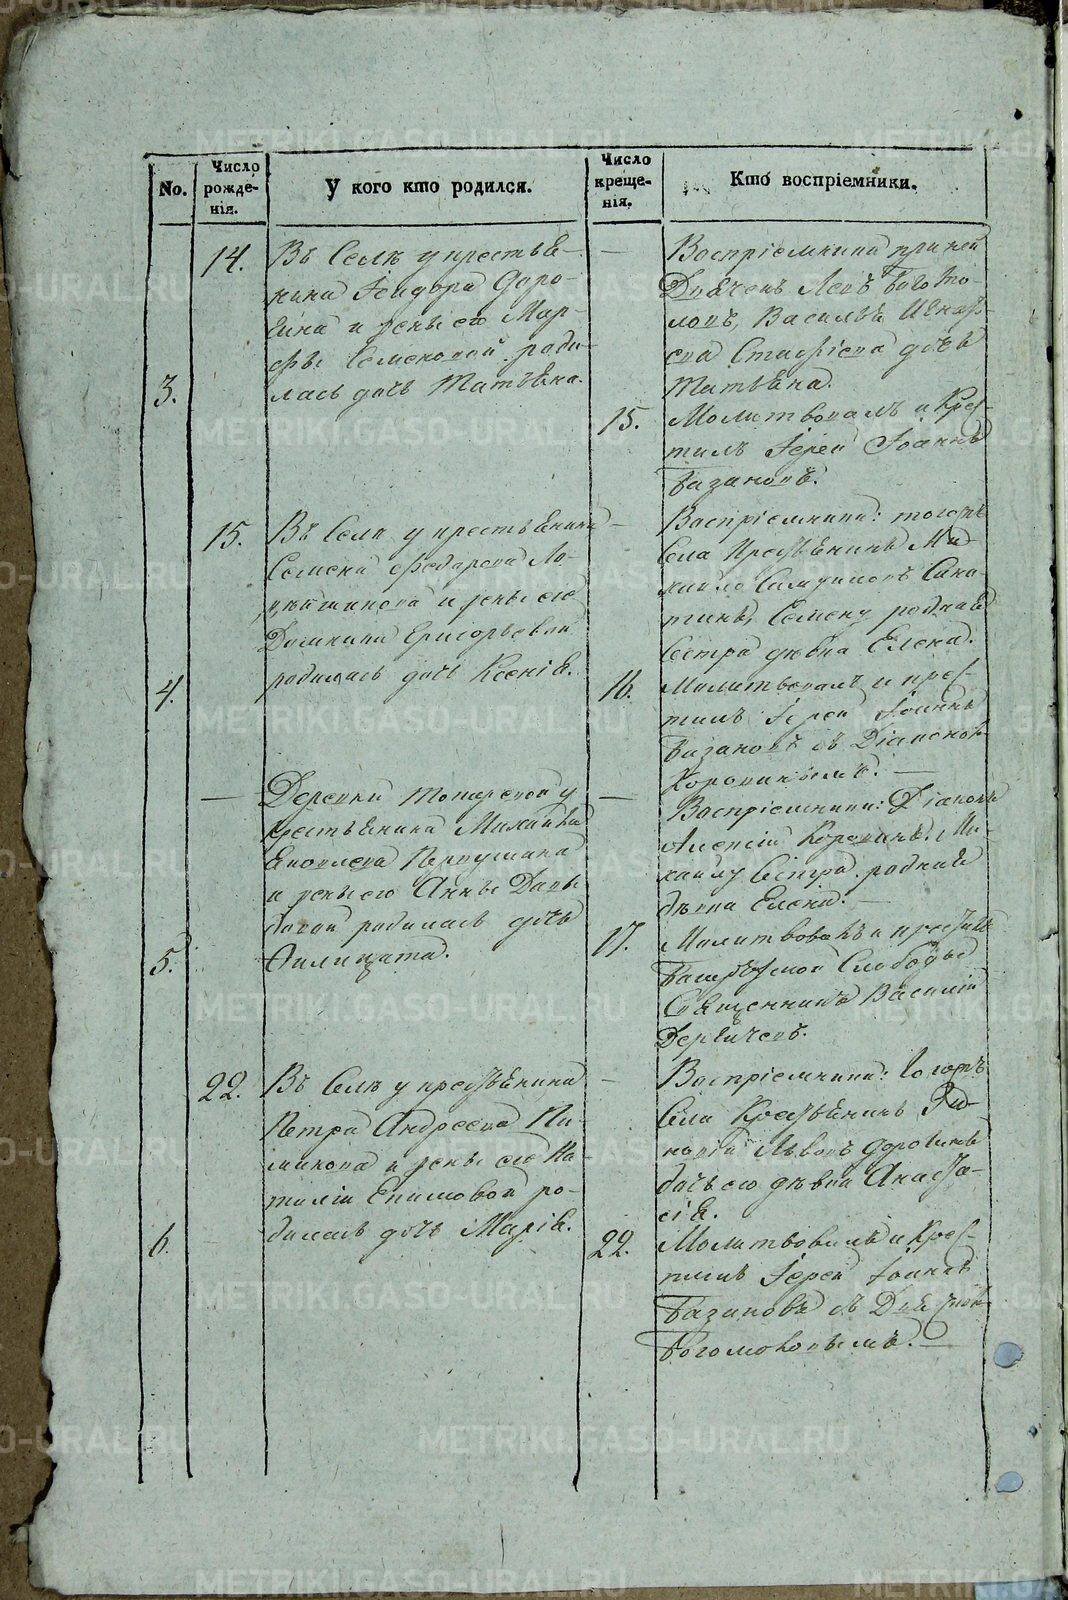 No.
Число рожде-нія.
У кого кто родился.
Число креще-нія.
Кто воспріемники.
14.
Въ Селѣ у крестья-
нина Ѳеодора Доро-
нина и жены его Мар-
фы Семеновой роди-
3.
лась дочь Татьяна.
Воспріемники при ней
Дьячекъ Левъ Богомо-
ловъ, Василья
дочь
Татьяна.
15.
Молитвовалъ и Крес-
тилъ Іерей Іоаннъ
Базановъ.
15.
Въ Селѣ у крестьянина
Семена Федорова
и жены его
Домники Григорьевой
4.
родилась дочь Ксенія.
Воспріемники: тогожъ
Села Крестьянинъ Ми-
хайло
Семену родная
Сестра дѣвка Елена.
16.
Молитвовалъ и крес-
тилъ Іерей Іоаннъ
Базановъ съ Діакономъ
Коровинымъ.
—
Деревни Токаревой у
крестьянина Михайла
Яковлева Первушина
и жены его Анны Давы-
довой родилась дочь
5.
Филицата.
Воспріемники: Діаконъ
Алексій Коровинъ. Ми-
хайлу Сестра родная
дѣвка Елена.
17.
Молитвовалъ и крестилъ
Слободы
Священникъ Василій
22.
Въ Селѣ у крестьянина
Петра Андреева Пи-
минова и жены его На-
таліи Екимовой ро-
6.
дилась дочь Марія.
Воспріемники: тогожъ
Села Крестьянинъ
Львовъ Доронинъ
дочь его дѣвка Анаста-
сія.
22.
Молитвовалъ и Крес-
тилъ Іерей Іоаннъ
Базановъ съ Дьячкомъ
Богомоловымъ.
METRIKI.GASO-URAL.RU